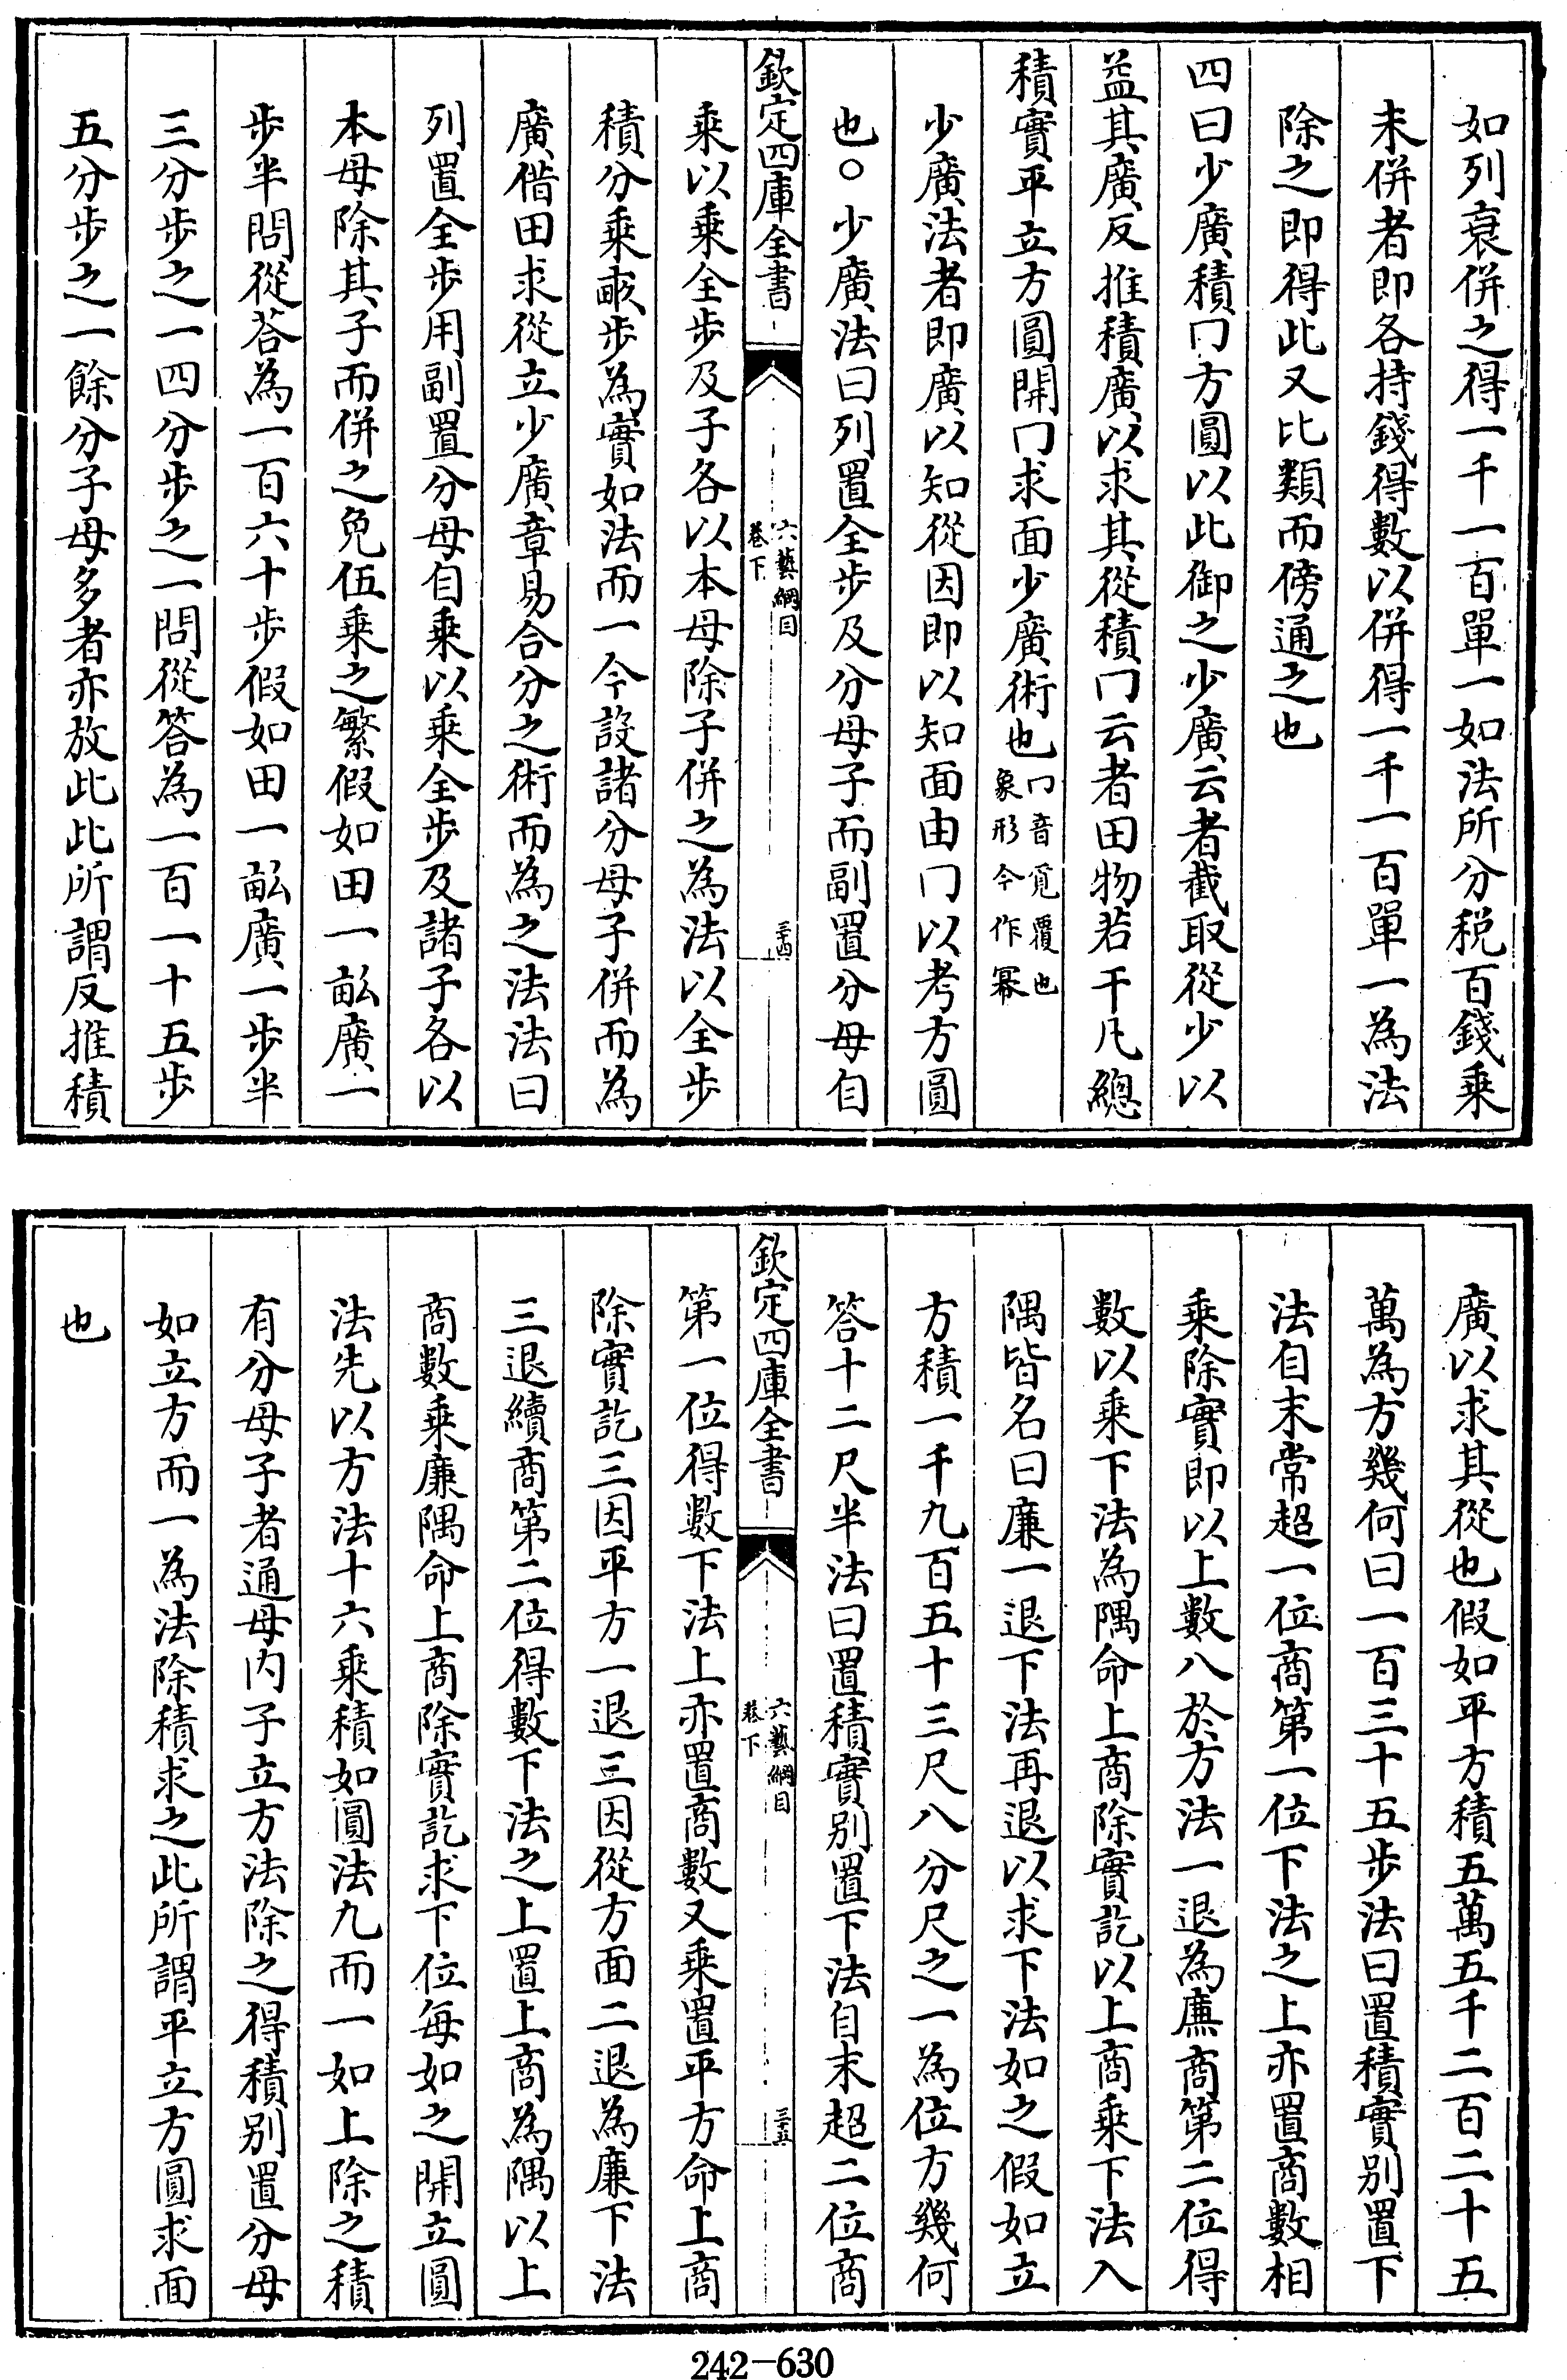 如列衰併之得一千一百單一如法所分税百錢乘
未併者即各持錢得數以併得一千一百單一為法
除之即得此又比類而傍通之也
四曰少廣積冂方圓以此御之少廣云者截取從少以
益其廣反推積廣以求其從積冂云者田物若干凡總
積實平立方圓開冂求面少廣術也冂音覓覆也
象形今作冪
少廣法者即廣以知從因即以知面由冂以考方圓
也○少廣法曰列置全步及分母子而副置分母自
欽定四庫全書
六藝綱目
卷下
三十四
乘以乘全步及子各以本母除子併之為法以全步
積分乘畝步為實如法而一今設諸分母子併而為
廣借田求從立少廣章易合分之術而為之法法曰
列置全步用副置分母自乘以乘全步及諸子各以
本母除其子而併之免伍乘之繁假如田一畝廣一
步半問從荅為一百六十步假如田一畝廣一步半
三分步之一四分步之一問從答為一百一十五步
五分步之一餘分子母多者亦放此此所謂反推積
廣以求其從也假如平方積五萬五千二百二十五
萬為方幾何曰一百三十五步法曰置積實别置下
法自末常超一位商第一位下法之上亦置商數相
乘除實即以上數八於方法一退為廉商第二位得
數以乘下法為隅命上商除實訖以上商乘下法入
隅皆名曰廉一退下法再退以求下法如之假如立
方積一千九百五十三尺八分尺之一為位方幾何
答十二尺半法曰置積實别置下法自末超二位商
欽定四庫全書
六藝綱目
卷下
三十五
第一位得數下法上亦置商數又乘置平方命上商
除實訖三因平方一退三因從方面二退為廉下法
三退續商第二位得數下法之上置上商為隅以上
商數乘廉隅命上商除實訖求下位每如之開立圓
法先以方法十六乘積如圓法九而一如上除之積
有分母子者通母内子立方法除之得積别置分母
如立方而一為法除積求之此所謂平立方圓求面
也
242-630